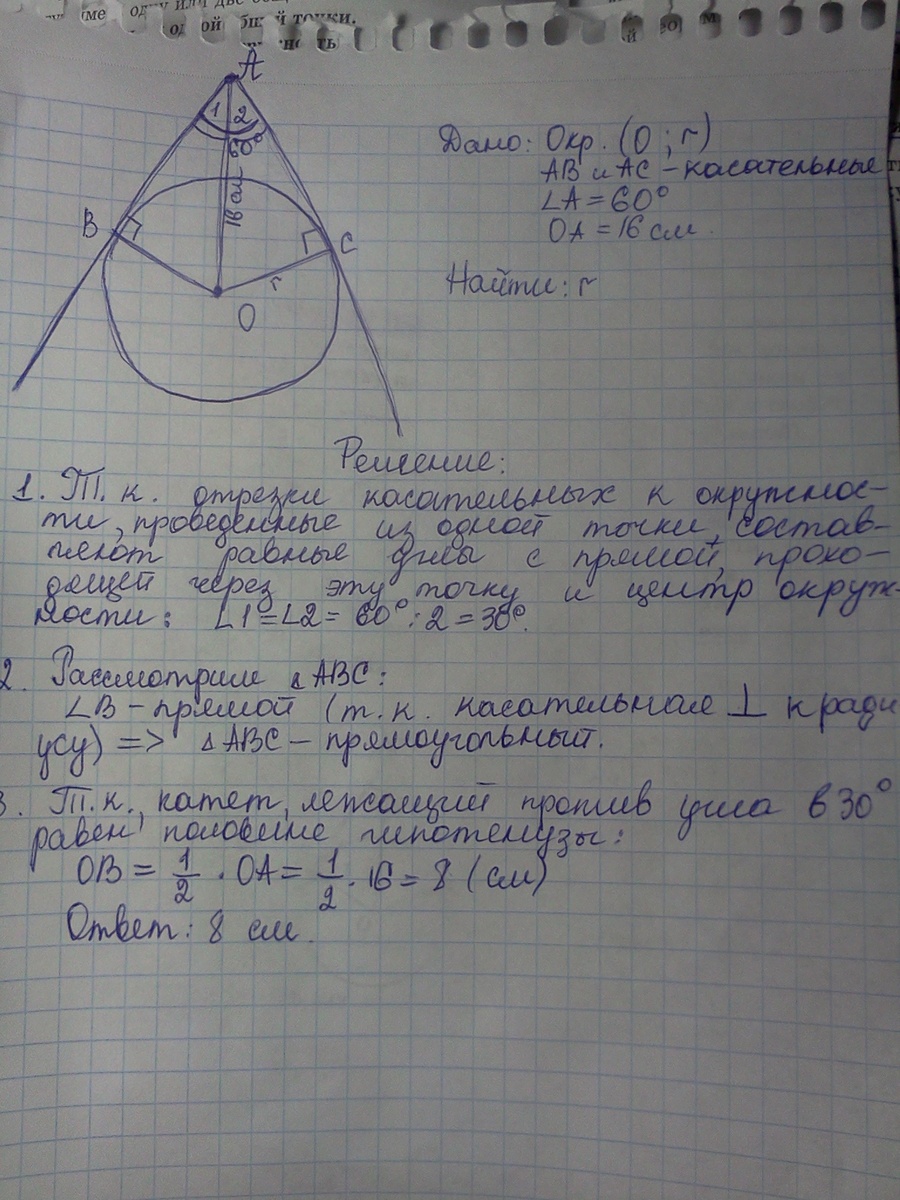 одной общей точки.
A
1 2
60°
16 см
B
C
r
O
Дано: Окр. (O; r)
AB и AC – касательные
∠A = 60°
OA = 16 см.
Найти: r
Решение:
1. Т. к. отрезки касательных к окружнос-
ти, проведенные из одной точки, состав-
ляют равные углы с прямой, прохо-
дящей через эту точку и центр окруж-
ности: ∠1 = ∠2 = 60° : 2 = 30°.
2. Рассмотрим △ABC:
∠B – прямой (т.к. касательная ⊥ к ради
усу) => △ABC – прямоугольный.
3. Т.к., катет, лежащий против угла в 30°
равен половине гипотенузы:
OB = 1/2 · OA = 1/2 · 16 = 8 (см)
Ответ: 8 см.